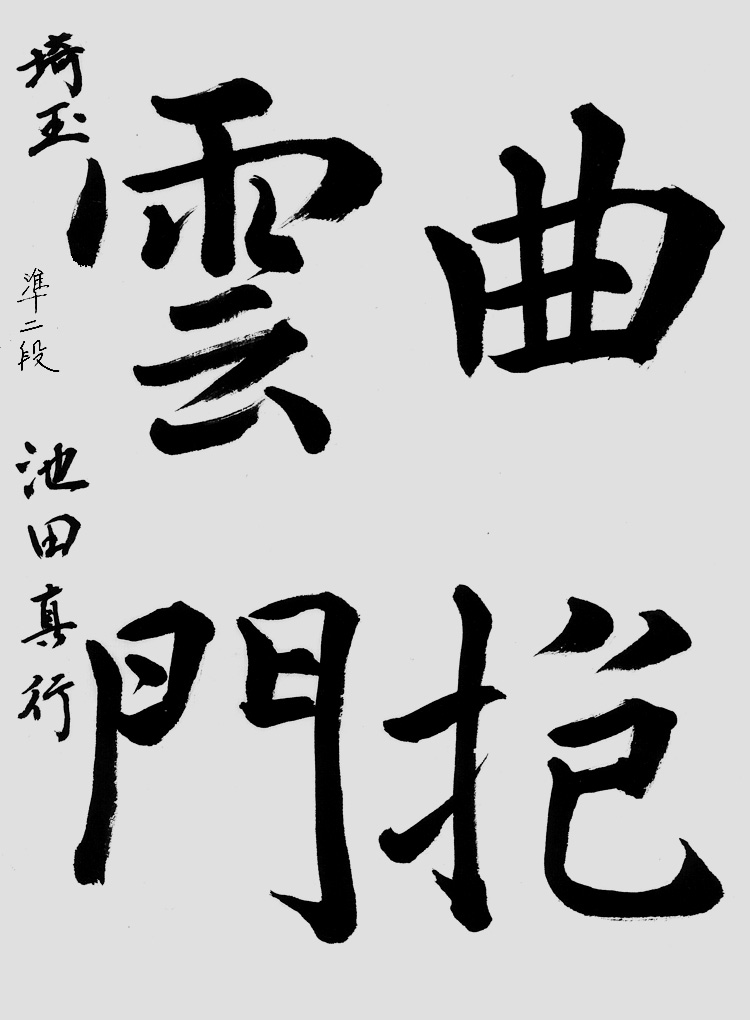 曲挹
雲門
埼玉 準二段 池田真行